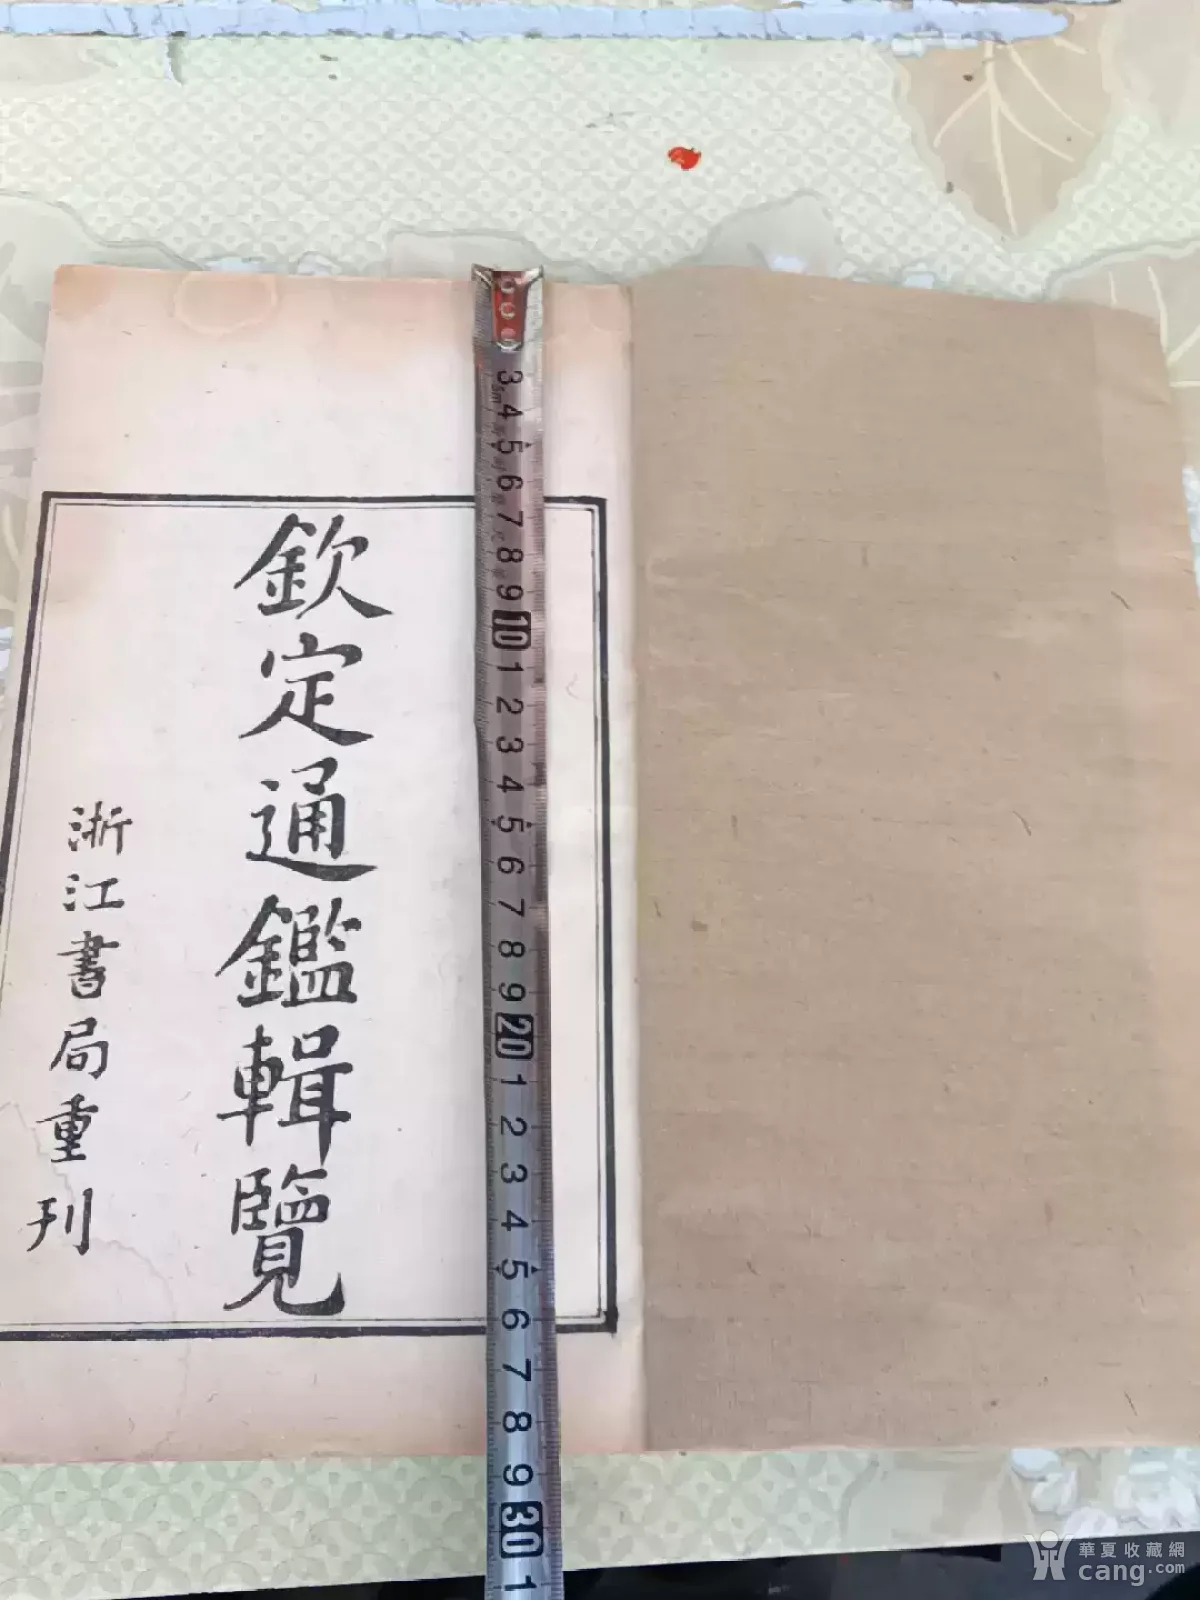 欽定通鑑輯覽
浙江書局重刊
3
5m
4
5
6
7
8
9
10
1
2
3
4
5
6
7
8
9
20
1
2
3
4
5
6
7
8
9
30
1
華夏收藏網
cang.com